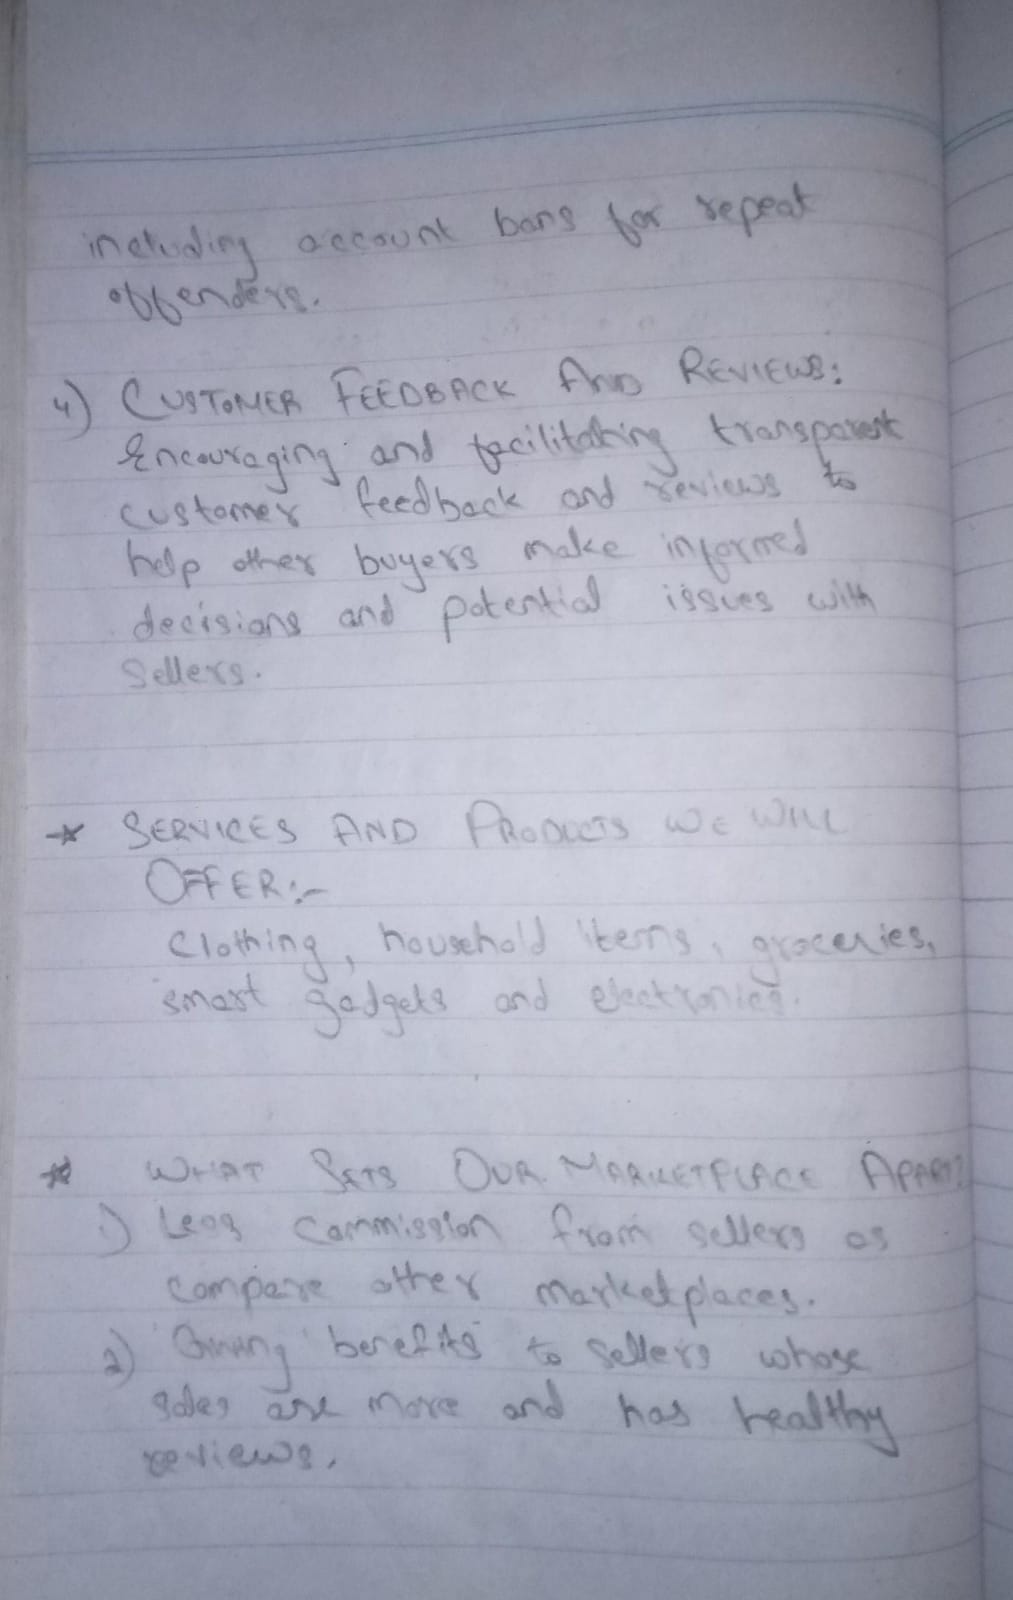 including account bans for repeat
offenders.
4) CUSTOMER FEEDBACK AND REVIEWS:
Encouraging and facilitating transparent
customer feedback and reviews to
help other buyers make informed
decisions and potential issues with
Sellers.
* SERVICES AND PRODUCTS WE WILL
OFFER:-
Clothing, household items, groceries,
smart gadgets and electronics.
* WHAT SETS OUR MARKETPLACE APART?
1) Less commission from sellers as
compare other marketplaces.
2) Giving benefits to Sellers whose
sales are more and has healthy
reviews.